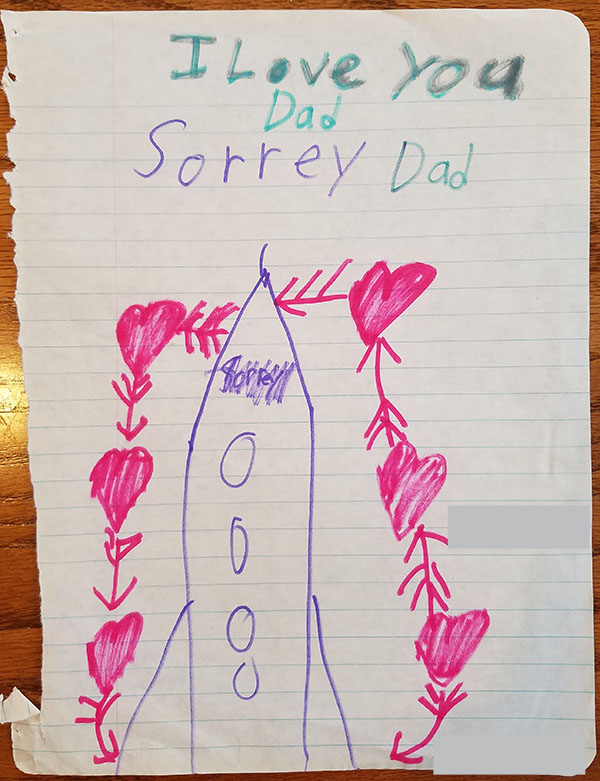 I Love You
Dad
Sorrey Dad
Sorrey